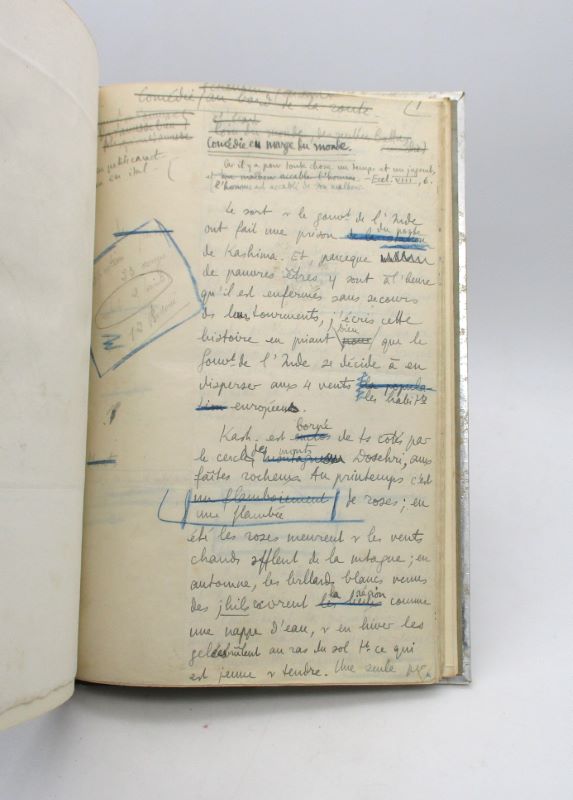 Comédie au bord de la route
(1
et l'art
Comédie en marge du monde.
Car il y a pour toute chose un temps et un jugement,
et que malheur accable l'homme. - Eccl. VIII, 6.
l'homme est accablé de son malheur.
publicant
en ital. (
Le sort & le gouvt de l'Inde
ont fait une prison de la station du poste
de Kashima. Et, parceque
de pauvres êtres, y sont à l'heure
qu'il est enfermés sans secours
ds leurs tourments, j'écris cette
histoire en priant pour bien que le
Gouvt de l'Inde se décide à en
disperser aux 4 vents la popula-
tion européenne. les habitts
Kash. est enclos borné de ts côtés par
le cercle des monts montagneux Doschri, aux
faîtes rocheux. Au printemps c'est
un flamboiement de roses; en
une flambée
été les roses meurent & les vents
chauds sfflent de la mtagne; en
automne, les brllards blancs venus
des jhils covrent les lieux la région comme
une nappe d'eau, & en hiver les
gelées brûlent au ras du sol tt ce qui
est jeune & tendre. Une seule